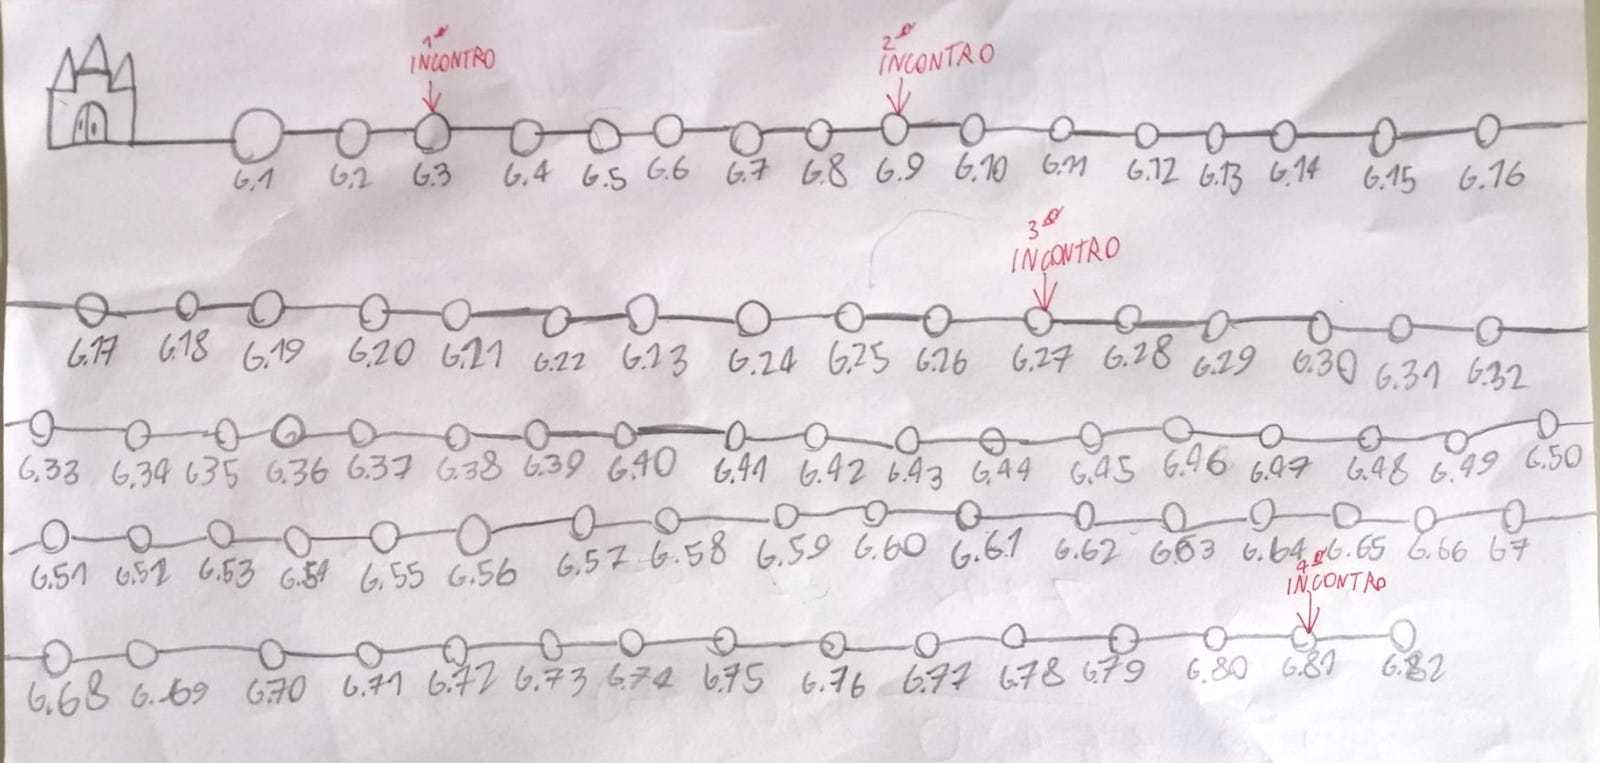 1º
INCONTRO
2º
INCONTRO
G.1 G.2 G.3 G.4 G.5 G.6 G.7 G.8 G.9 G.10 G.11 G.12 G.13 G.14 G.15 G.16
3º
INCONTRO
G.17 G.18 G.19 G.20 G.21 G.22 G.23 G.24 G.25 G.26 G.27 G.28 G.29 G.30 G.31 G.32
G.33 G.34 G35 G.36 G.37 G.38 G.39 G.40 G.41 G.42 G.43 G.44 G.45 G.46 G.47 G.48 G.49 G.50
G.51 G.52 G.53 G.54 G.55 G.56 G.57 G.58 G.59 G.60 G.61 G.62 G63 G.64 G.65 G.66 67
4º
INCONTRO
G.68 G.69 G.70 G.71 G.72 G.73 G.74 G.75 G.76 G.77 G.78 G.79 G.80 G.81 G.82